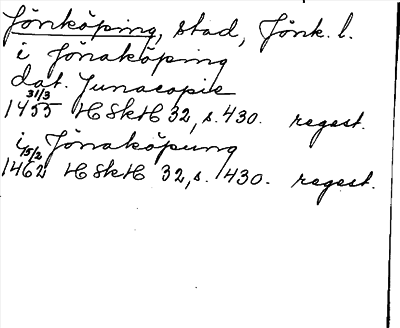 Jönköping, stad, Jönk. l.
i Jönaköping
dat. Junacopie
1455 31/3 HSkH 32, s. 430. regest.
i Jönaköpung
1462 15/2 HSkH 32, s. 430. regest.